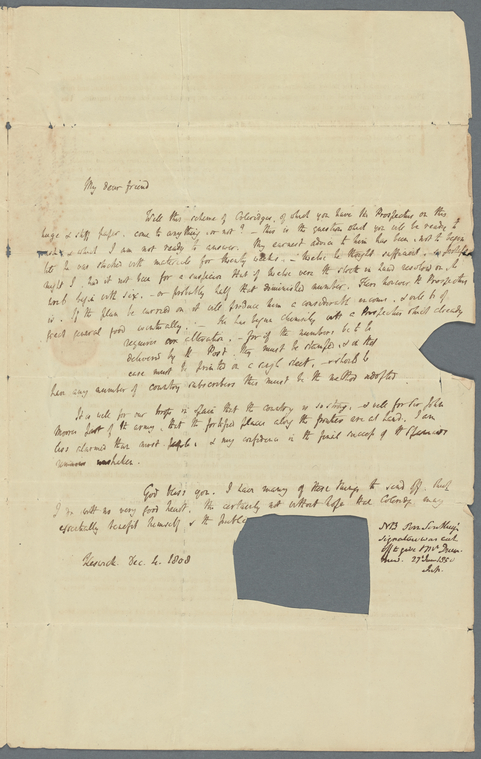 My dear friend
Will this scheme of Coleridges, of which you have the Prospectus on this
huge & stiff paper, come to anything, or not? – this is the question which you will be ready to
ask, & which I am not ready to answer. My earnest advice to him has been, not to begin
till he was stocked with materials for twenty weeks. – twelve he thought sufficient, – &
might I had it not been for a suspicion that if twelve were the stock in hand resolved on, he
would begin with six, – or probably half that diminished number. Here however the Prospectus
is. If the plan be carried on it will produce him a considerable income, & will be of
great general good eventually. – He has begun clumsily with a Prospectus which already
requires an alteration, – for if the numbers be to be
delivered by the Post they must be stamped, & in that
case must be printed on a single sheet, – & should he
have any number of country subscribers this must be the method adopted.
It is well for our troops in Spain that the country is so strong, & well for Sir John
Moores part of the army, that the fortified places along the frontier are at hand. I am
less alarmed than most people, & my confidence in the final success of the Spaniards
remains unshaken.
God bless you. I have many of these things to send off. Such
I do with no very good heart. Tho certainly not without hope that Coleridge may
essentially benefit himself, & the public
Keswick. Dec. 4. 1808
NB Robt Southey's
signature was cut
off to give Mrs
27 June 1850